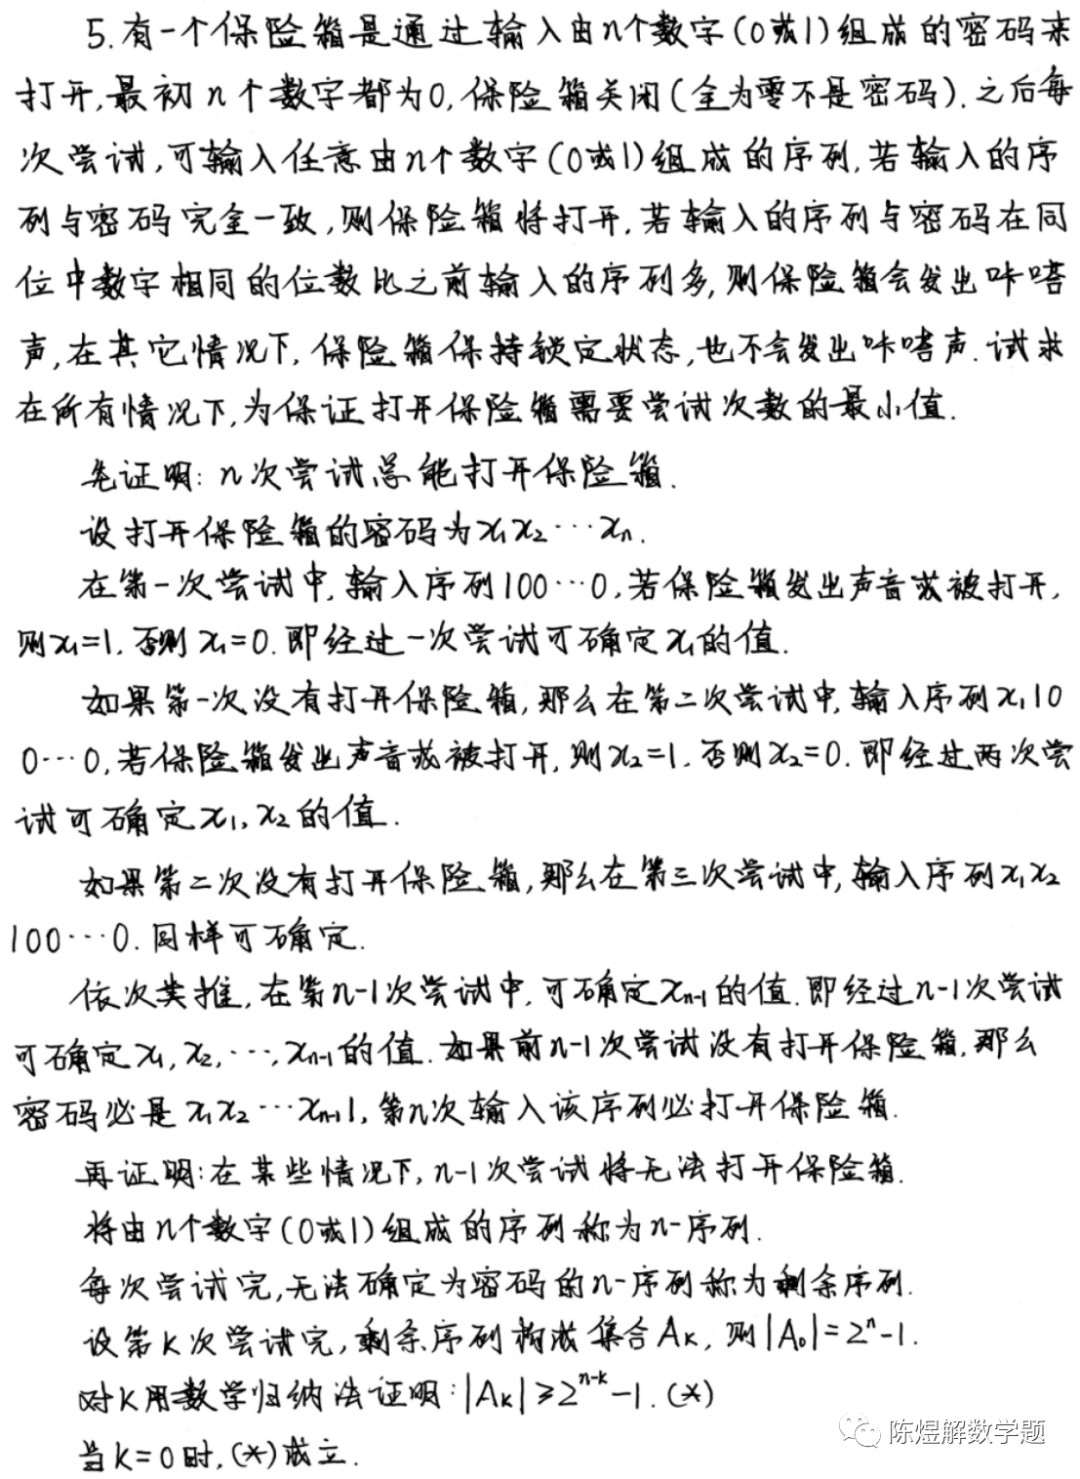 5.有一个保险箱是通过输入由n个数字(0或1)组成的密码来
打开,最初n个数字都为0,保险箱关闭(全为零不是密码).之后每
次尝试,可输入任意由n个数字(0或1)组成的序列,若输入的序
列与密码完全一致,则保险箱将打开,若输入的序列与密码在同
位中数字相同的位数比之前输入的序列多,则保险箱会发出咔嗒
声,在其它情况下,保险箱保持锁定状态,也不会发出咔嗒声.试求
在所有情况下,为保证打开保险箱需要尝试次数的最小值.
先证明:n次尝试总能打开保险箱.
设打开保险箱的密码为x₁x₂⋯xₙ.
在第一次尝试中,输入序列100⋯0,若保险箱发出声音或被打开,
则x₁=1.否则x₁=0.即经过一次尝试可确定x₁的值.
如果第一次没有打开保险箱,那么在第二次尝试中,输入序列x₁10
0⋯0,若保险箱发出声音或被打开,则x₂=1.否则x₂=0.即经过两次尝
试可确定x₁,x₂的值.
如果第二次没有打开保险箱,那么在第三次尝试中,输入序列x₁x₂
100⋯0.同样可确定.
依次类推,在第n-1次尝试中,可确定xₙ₋₁的值.即经过n-1次尝试
可确定x₁,x₂,⋯,xₙ₋₁的值.如果前n-1次尝试没有打开保险箱,那么
密码必是x₁x₂⋯xₙ₋₁1,第n次输入该序列必打开保险箱.
再证明:在某些情况下,n-1次尝试将无法打开保险箱.
将由n个数字(0或1)组成的序列称为n-序列.
每次尝试完,无法确定为密码的n-序列称为剩余序列.
设第k次尝试完,剩余序列构成集合Aₖ,则|A₀|=2ⁿ-1.
对k用数学归纳法证明:|Aₖ|≥2ⁿ⁻ᵏ-1.(*)
当k=0时,(*)成立.
陈煜解数学题